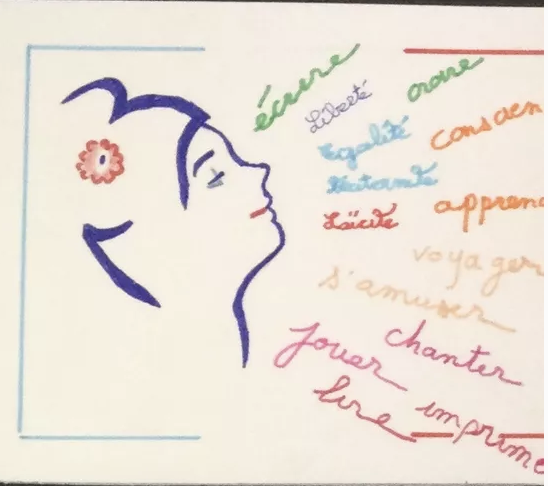 écrire
croire
Liberté
Egalité
conscien
Fraternité
Laïcité
apprend
voyager
s'amuser
chanter
jouer
lire
imprime